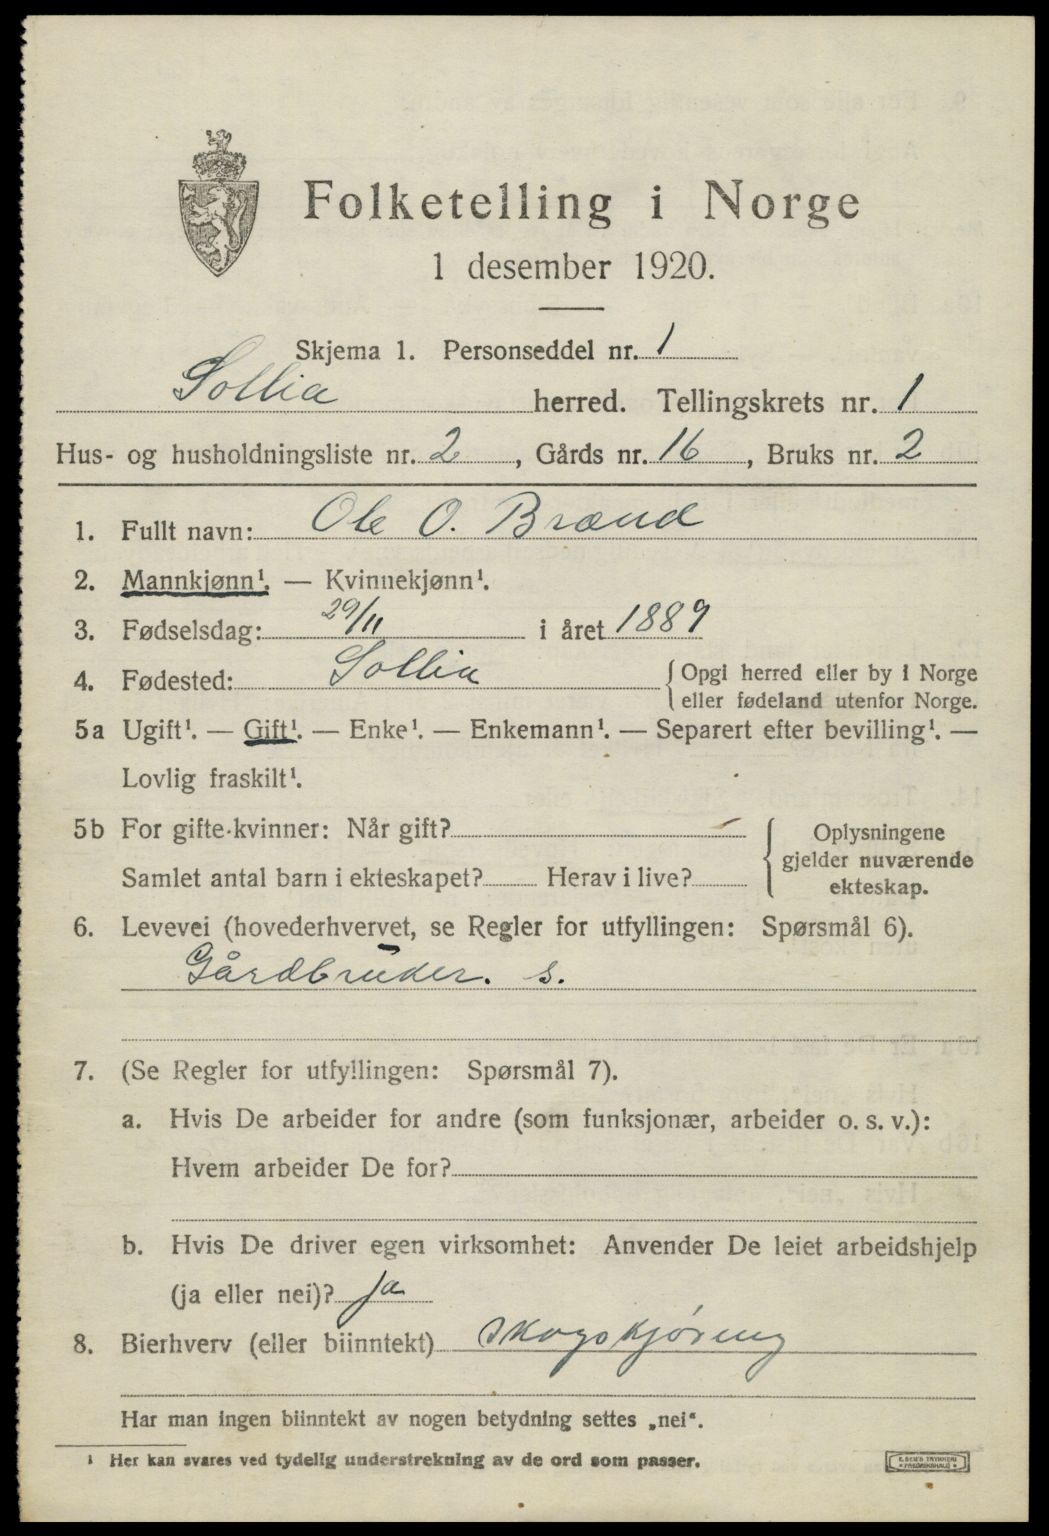 Folketelling i Norge
1 desember 1920.
Skjema 1. Personseddel nr. 1
Sollia herred. Tellingskrets nr. 1
Hus- og husholdningsliste nr. 2, Gårds nr. 16, Bruks nr. 2
1. Fullt navn: Ole O. Brænd
2. Mannkjønn¹. — Kvinnekjønn¹.
3. Fødselsdag: 29/11 i året 1889
4. Fødested: Sollia { Opgi herred eller by i Norge
eller fødeland utenfor Norge.
5a Ugift¹. — Gift¹. — Enke¹. — Enkemann¹. — Separert efter bevilling¹. —
Lovlig fraskilt¹.
5b For gifte kvinner: Når gift?
Samlet antal barn i ekteskapet? Herav i live?
{ Oplysningene
gjelder nuværende
ekteskap.
6. Levevei (hovederhvervet, se Regler for utfyllingen: Spørsmål 6).
Gårdbruker. s.
7. (Se Regler for utfyllingen: Spørsmål 7).
a. Hvis De arbeider for andre (som funksjonær, arbeider o. s. v.):
Hvem arbeider De for?
b. Hvis De driver egen virksomhet: Anvender De leiet arbeidshjelp
(ja eller nei)? ja
8. Bierhverv (eller biinntekt) Skogskjøring
Har man ingen biinntekt av nogen betydning settes „nei“.
¹ Her kan svares ved tydelig understrekning av de ord som passer.